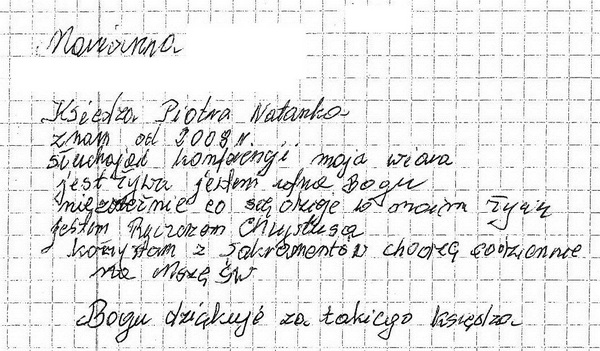 Marianna
Księdza Piotra Natanka
znam od 2008 r.
słuchająć konferencji moja wiara
jest żywa jestem ufna Bogu
niezależnie co się dzieje w moim życiu
jestem Rycerzem Chrystusa
kożystam z sakramentów chodzę codziennie
na Mszę św
Bogu dziękuję za takiego księdza